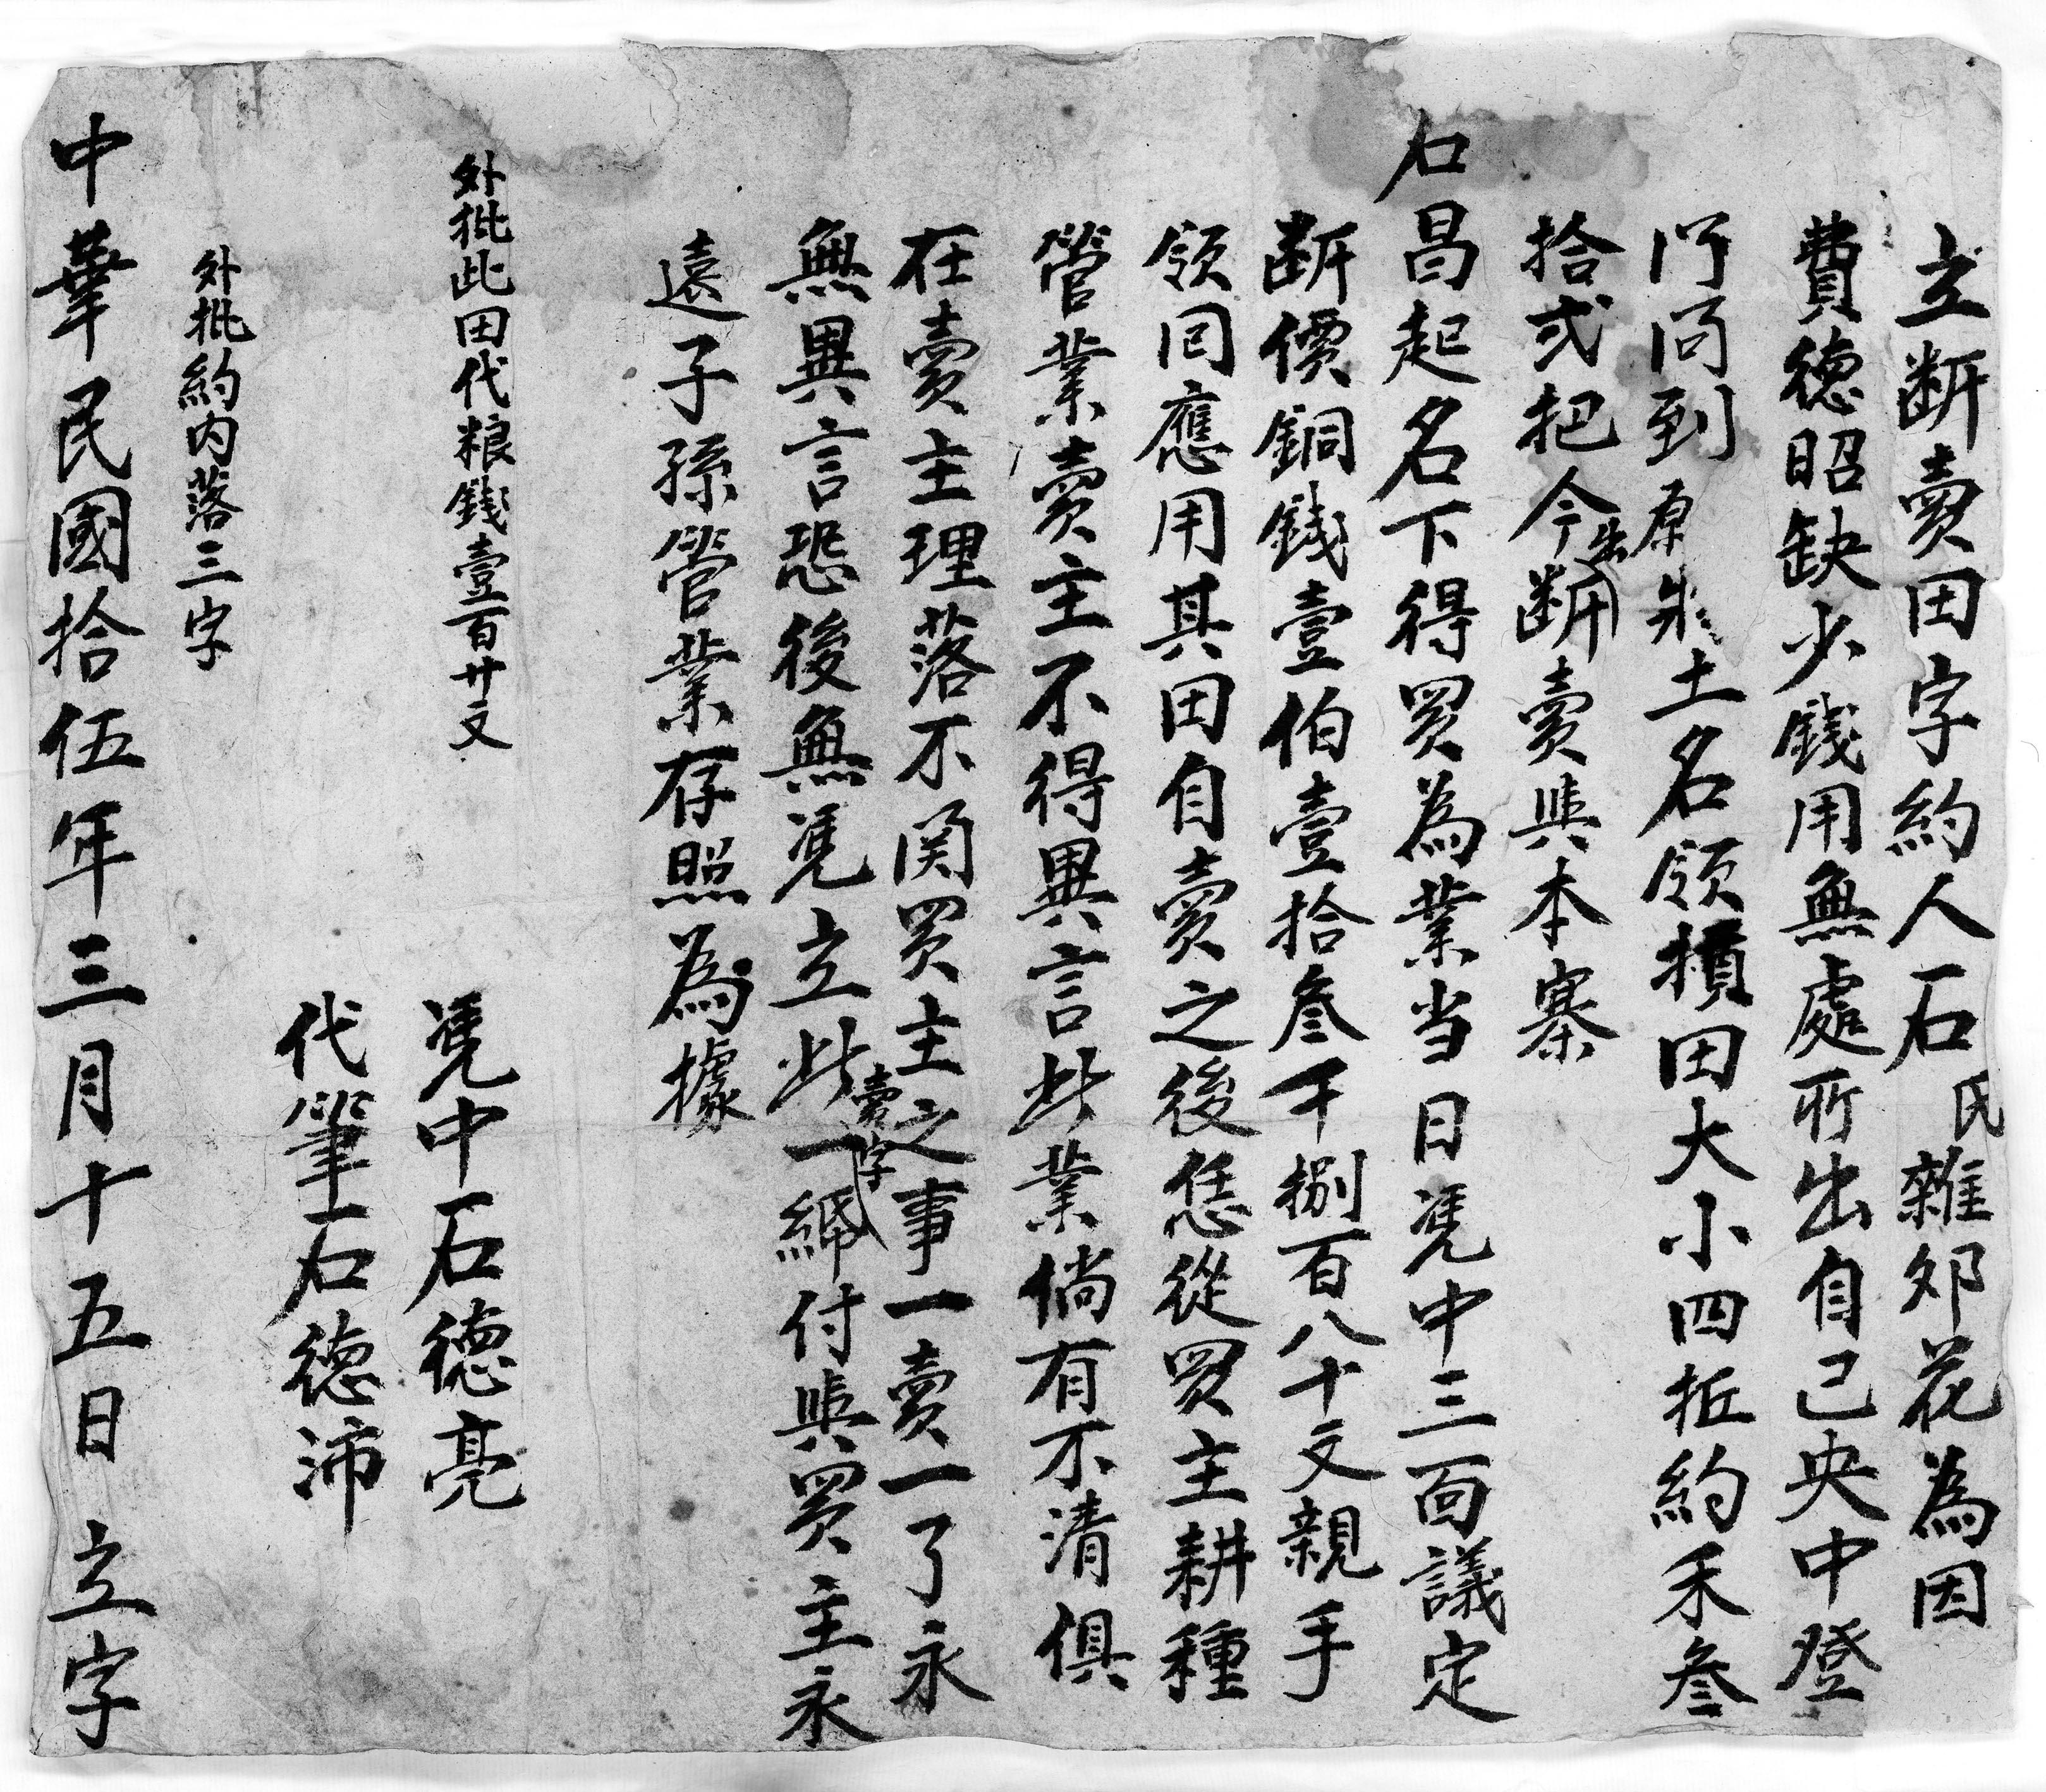 立断賣田字約人石氏雜郊花為因
費德昭缺少錢用無處所出自己央中登
门问到原先土名領擯田大小四坵約禾叁
拾弍把今出断賣與本寨
石昌起名下得買為業当日凴中三面議定
断價銅錢壹伯壹拾叁千捌百八十文親手
領回應用其田自賣之後恁從買主耕種
管業賣主不得異言此業倘有不清俱
在賣主理落不関買主之事一賣一了永
無異言恐後無凴立此一紙賣字付與買主永
遠子孫管業存照為據
外批此田代粮錢壹百廿文
凴中石德亮
代筆石德沛
外批約内落三字
中華民國拾伍年三月十五日立字